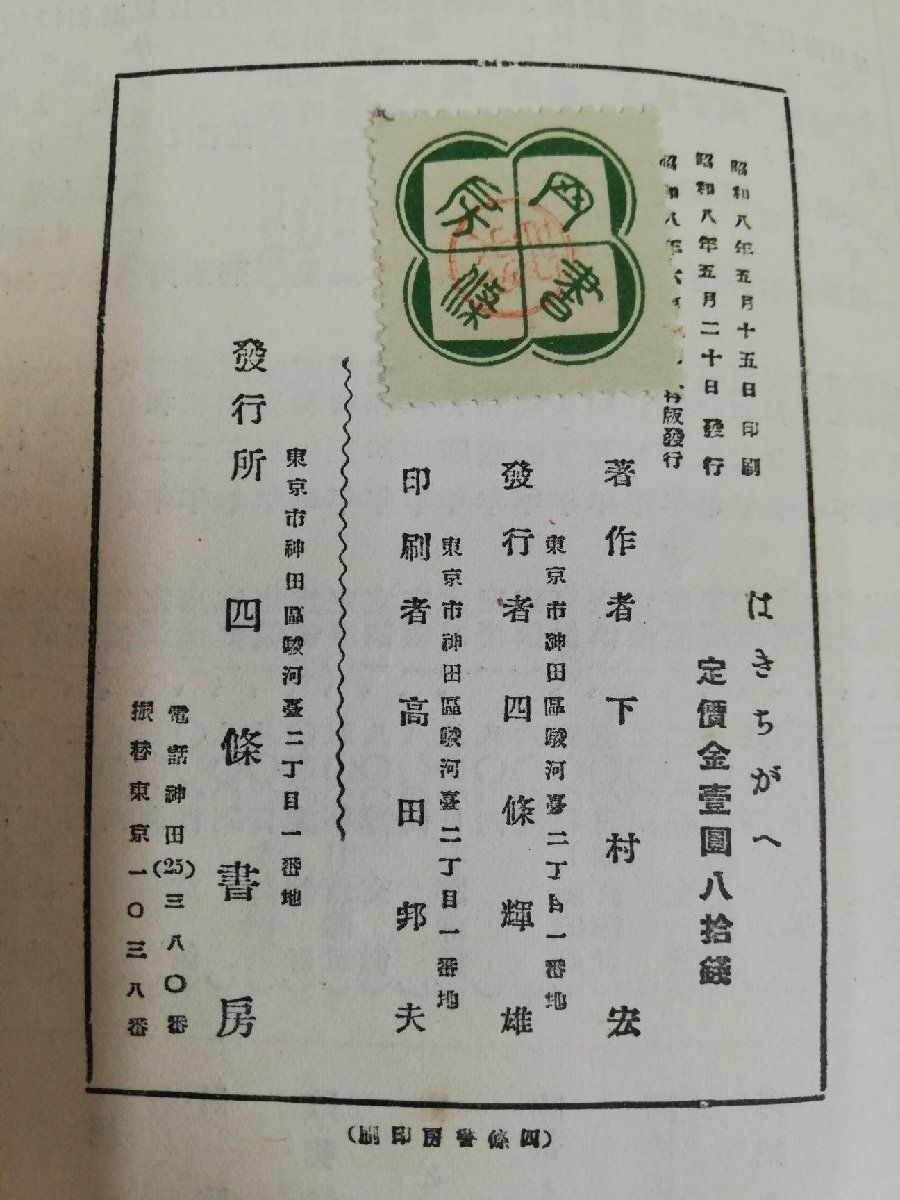 昭和八年五月十五日印刷
昭和八年五月二十日發行
昭和八年六 版發行
はきちがへ
定價金壹圓八拾錢
著作者 下村宏
東京市神田區駿河臺二丁目一番地
發行者 四條輝雄
東京市神田區駿河臺二丁目一番地
印刷者 高田邦夫
東京市神田區駿河臺二丁目一番地
發行所 四條書房
電話神田(25)三八〇番
振替東京一〇三八番
四條書房
(四條書房印刷)